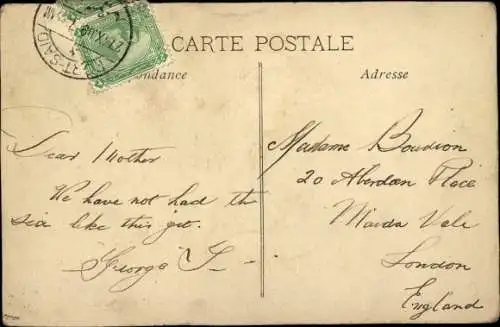 CARTE POSTALE
Adresse
Dear Mother
We have not had the
sea like this yet.
George
Madame Boudion
20 Aberdeen Place
Maida Vale
London
England
PORT-SAID